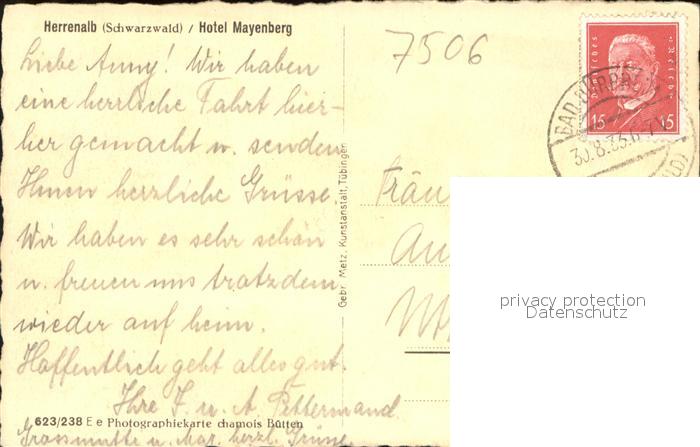 Herrenalb (Schwarzwald) / Hotel Mayenberg
7506
Liebe Anny! Wir haben
eine herrliche Fahrt hier-
her gemacht u. senden
Ihnen herzliche Grüsse.
Wir haben es sehr schön
u. freuen uns trotzdem
wieder auf heim.
Hoffentlich geht alles gut.
Ihre F. u. A. Pettermand
Grossmutter u. Mar. herzl. Grüsse
623/238 E e Photographiekarte chamois Bütten
Gebr. Metz, Kunstanstalt, Tübingen
Deutsches Reich
15 15
30.8.33.6-7
Fräu
privacy protection
Datenschutz